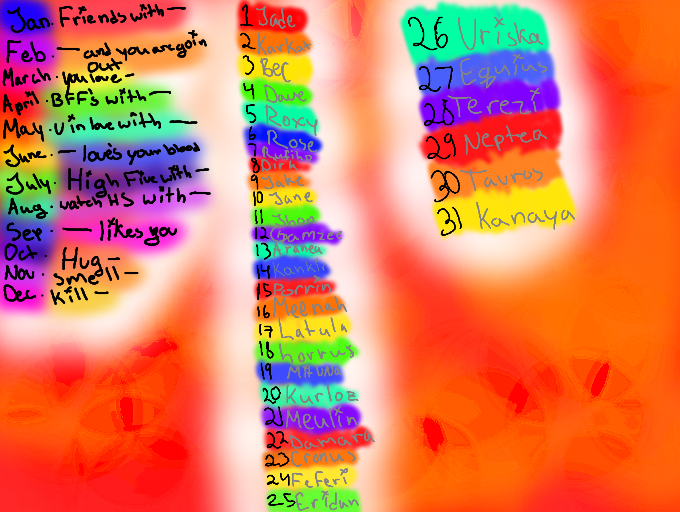 Jan. Friends with —
Feb — and you are goin
out
March. you love —
April. BFF's with —
May. U in love with —
June. — love's your blood
July. High Five with —
Aug. watch HS with —
Sep — likes you
Oct. Hug —
Nov. smell —
Dec. Kill —
1 Jade
2 Karkat
3 Bec
4 Dave
5 Roxy
6 Rose
7 Rufiho
8 Dirk
9 Jake
10 Jane
11 Jhon
12 Gamzee
13 Aranea
14 Kankri
15 Porrin
16 Meenah
17 Latula
18 horrus
19 Mituna
20 Kurloz
21 Meulin
22 Damara
23 Cronus
24 Feferi
25 Eridan
26 Vriska
27 Equius
28 Terezi
29 Neptea
30 Tavros
31 Kanaya